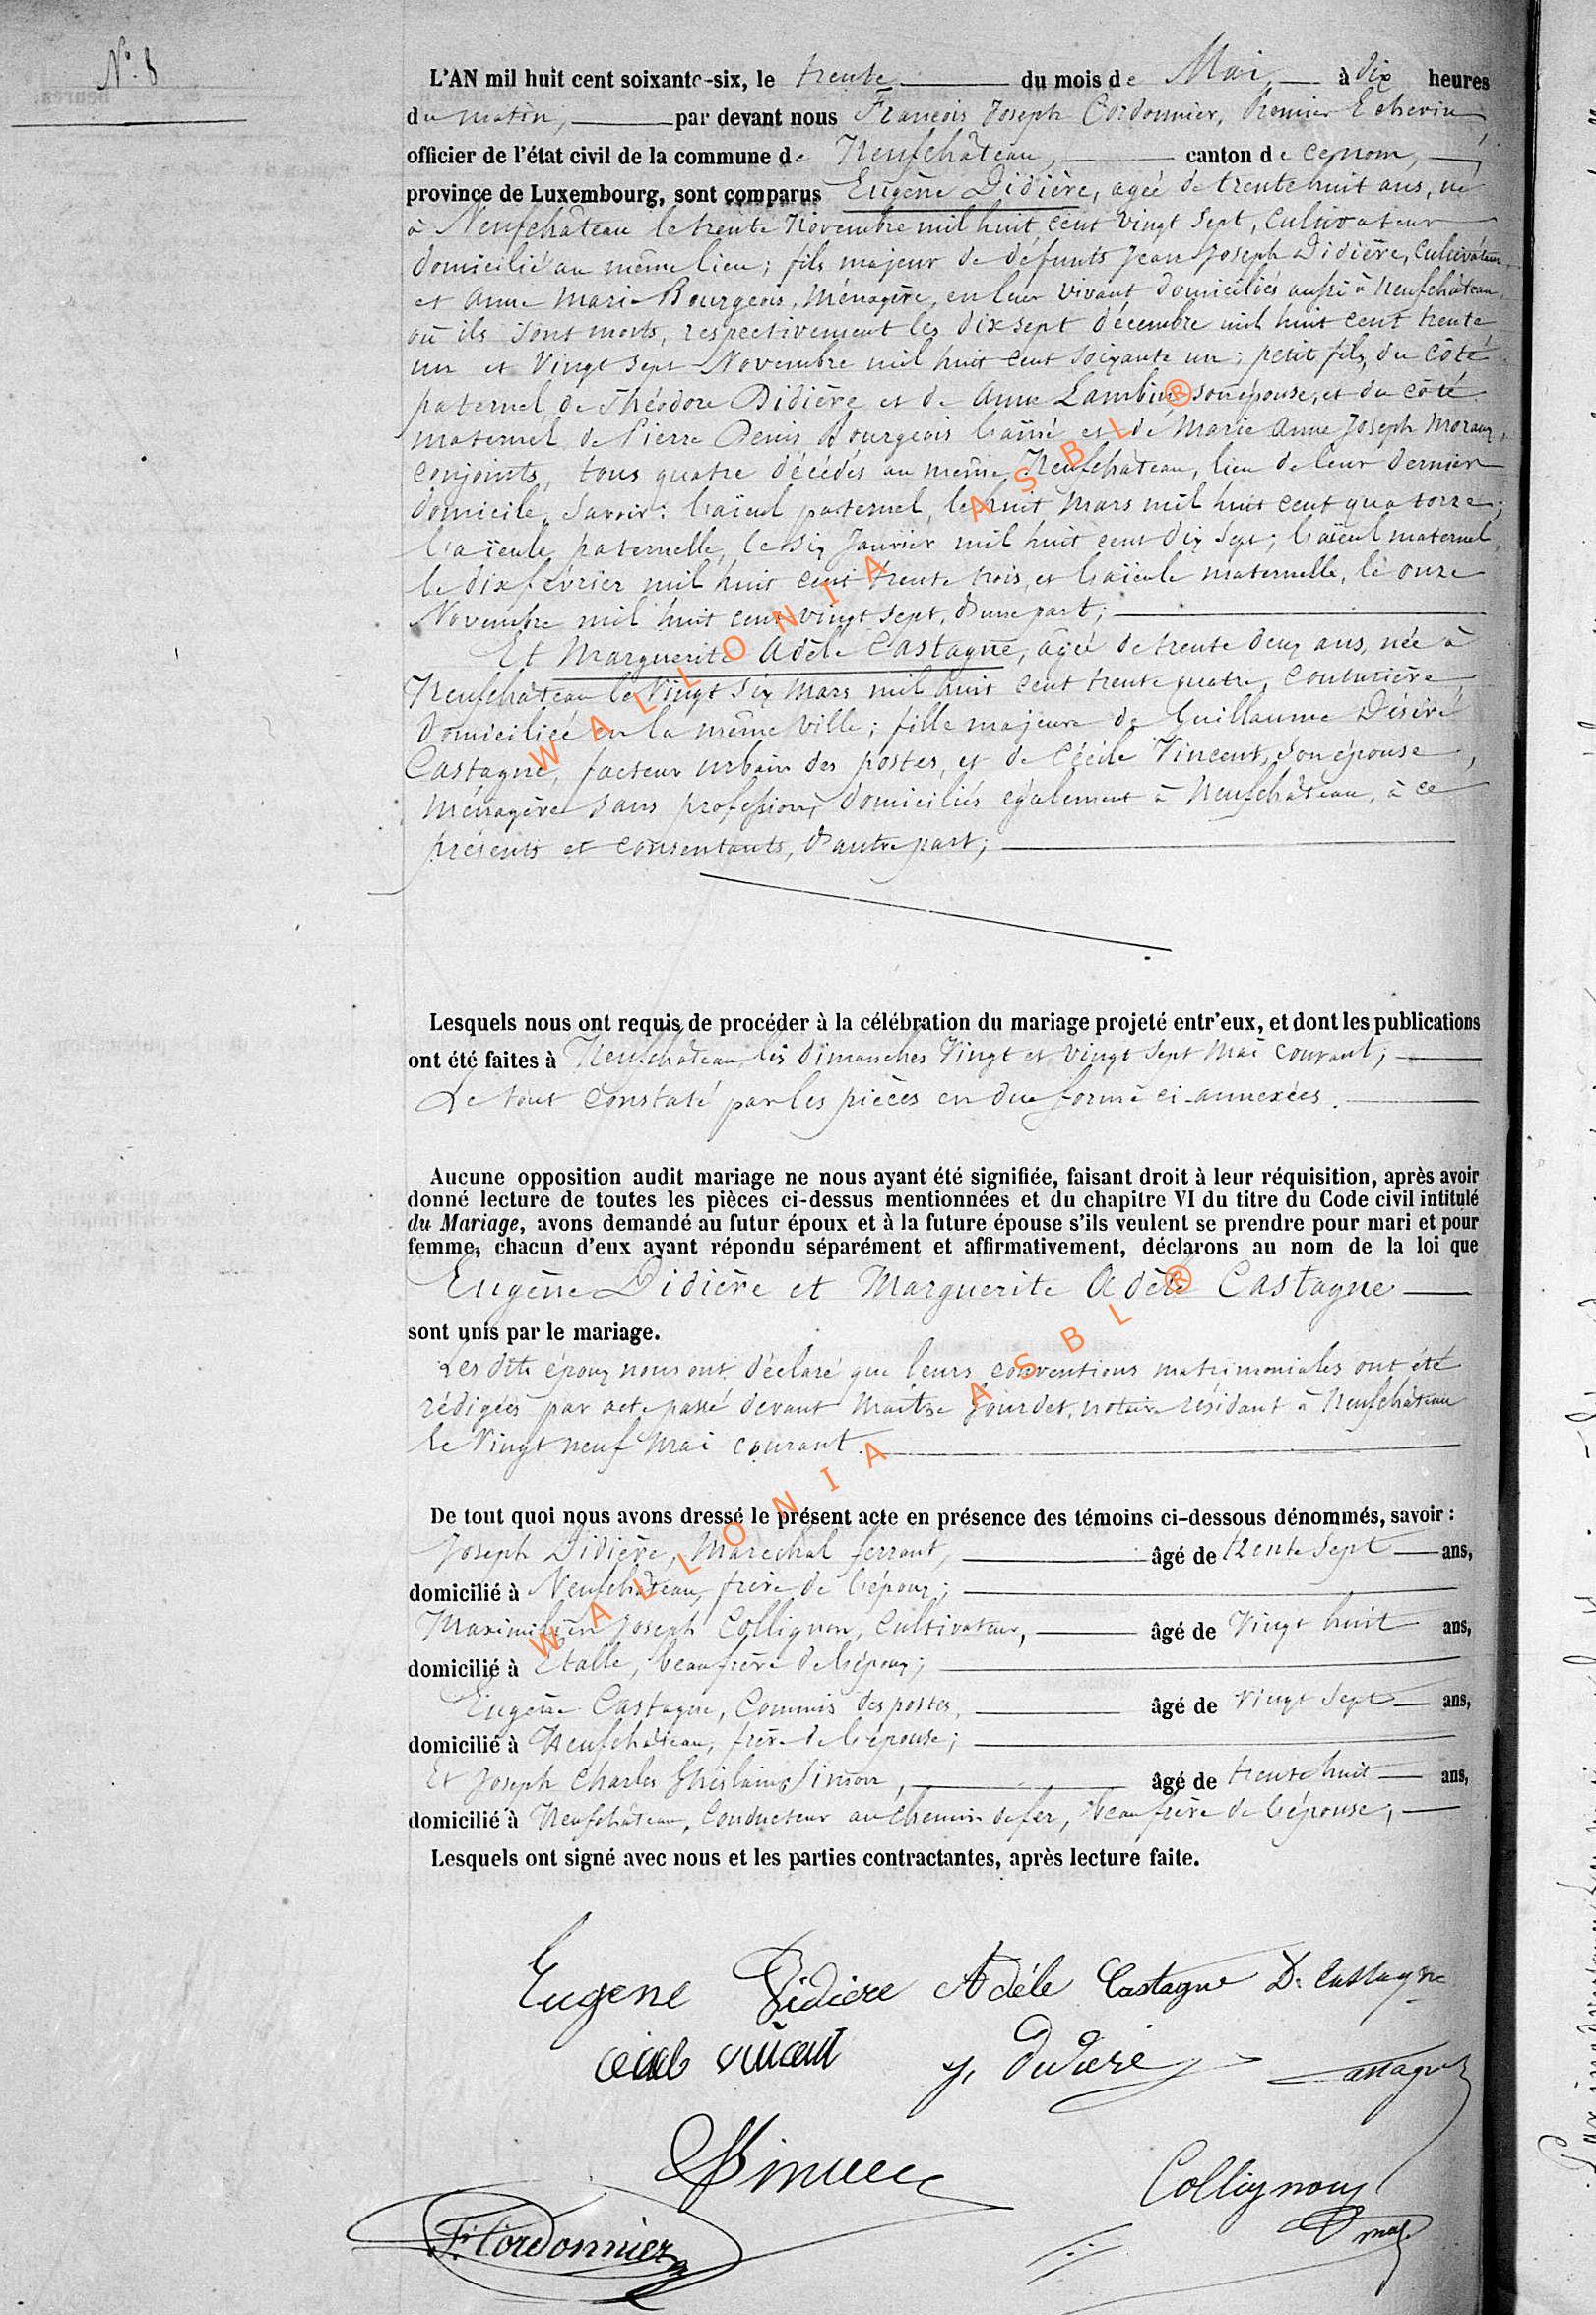 N° 8
L'AN mil huit cent soixante-six, le trente du mois de Mai, à dix heures
du matin, par devant nous François Joseph Cordonnier, premier Echevin,
officier de l'état civil de la commune de Neufchâteau, canton de ce nom,
province de Luxembourg, sont comparus Eugène Didière, agée de trente huit ans, né
à Neufchâteau le trente Novembre mil huit cent vingt sept, cultivateur
domicilié au même lieu; fils majeur de défunts Jean Joseph Didière, Cultivateur
et Anne Marie Bourgeois, Ménagère, en leur vivant domiciliés aussi à Neufchâteau,
où ils sont morts, respectivement les dix sept décembre mil huit cent trente
un et Vingt sept Novembre mil huit cent soixante un; petit fils, du côté
paternel, de Théodore Didière et de Anne Lambin, son épouse, et du côté
maternel de Pierre Denis Bourgeois l'aîné et de Marie Anne Joseph Moraux,
conjoints, tous quatre décédés au même Neufchâteau, lieu de leur dernier
domicile, Savoir: l'aïeul paternel, le huit Mars mil huit cent quatorze;
l'aïeule paternelle, le six Janvier mil huit cent dix sept; l'aïeul maternel,
le dix février mil huit cent trente trois, et l'aïeule maternelle, le onze
Novembre mil huit cent vingt sept, d'une part;
Et Marguerite Adèle Castagne, âgée de trente deux ans, née à
Neufchâteau le Vingt six Mars mil huit cent trente quatre, Couturière,
domiciliée en la même Ville; fille majeure de Guillaume Désiré
Castagne, facteur urbain des postes, et de Cécile Vincent, son épouse,
Ménagère sans profession, domiciliés également à Neufchâteau, à ce
présents et consentants, d'autre part;
Lesquels nous ont requis de procéder à la célébration du mariage projeté entr'eux, et dont les publications
ont été faites à Neufchâteau, les dimanches Vingt et Vingt sept Mai courant;
Le tout constaté par les pièces en due forme ci-annexées.
Aucune opposition audit mariage ne nous ayant été signifiée, faisant droit à leur réquisition, après avoir
donné lecture de toutes les pièces ci-dessus mentionnées et du chapitre VI du titre du Code civil intitulé
du Mariage, avons demandé au futur époux et à la future épouse s'ils veulent se prendre pour mari et pour
femme, chacun d'eux ayant répondu séparément et affirmativement, déclarons au nom de la loi que
Eugène Didière et Marguerite Adèle Castagne
sont unis par le mariage.
Les dits époux nous ont déclaré que leurs conventions matrimoniales ont été
rédigées par acte passé devant Maître Jourdet, notaire résidant à Neufchâteau
le Vingt neuf Mai courant.
De tout quoi nous avons dressé le présent acte en présence des témoins ci-dessous dénommés, savoir:
Joseph Didière, Maréchal ferrant, âgé de trente sept ans,
domicilié à Neufchâteau, frère de l'époux;
Maximilien Joseph Collignon, Cultivateur, âgé de Vingt huit ans,
domicilié à Etalle, beau frère de l'époux;
Eugène Castagne, Commis des postes, âgé de Vingt Sept ans,
domicilié à Neufchâteau, frère de l'épouse;
Et Joseph Charles Ghislain Simon, âgé de trente huit ans,
domicilié à Neufchâteau, Conducteur au chemin de fer, beau frère de l'épouse;
Lesquels ont signé avec nous et les parties contractantes, après lecture faite.
Eugene Didiere Adéle Castagne D. Castagne
cecile vincent J. Didiere Castagne
Simon Collignon
Fs Cordonnier
WALLONIA ASBL ®
WALLONIA ASBL ®